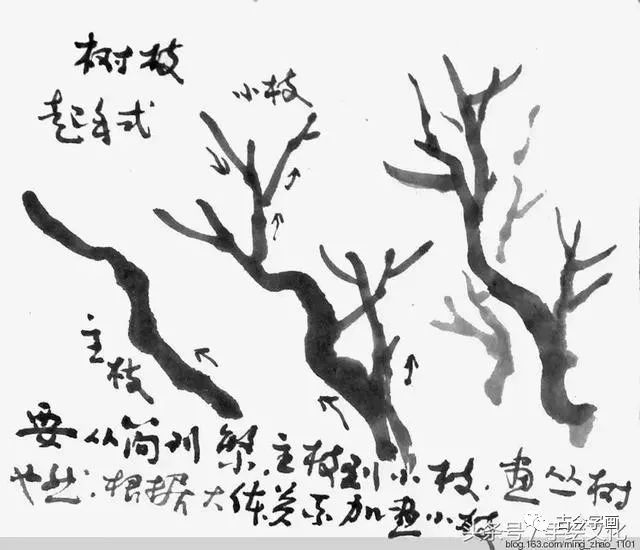 树枝
起手式
小枝
主枝
要从简到繁.主枝到小枝.画丛树
也然.根据大体关系加画小树
头条号/手绘文化
古今字画
blog.163.com/ming_zhao_1101